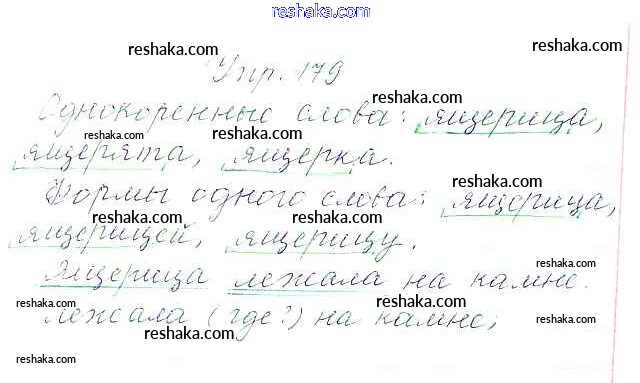 reshaka.com
reshaka.com
reshaka.com
Упр. 179
reshaka.com
Однокоренные слова: ящерица,
reshaka.com
reshaka.com
ящерята, ящерка.
reshaka.com
Формы одного слова: ящерица,
reshaka.com
reshaka.com
ящерицей, ящерицу.
reshaka.com
Ящерица лежала на камне.
reshaka.com
reshaka.com
reshaka.com
лежала (где?) на камне;
reshaka.com
reshaka.com